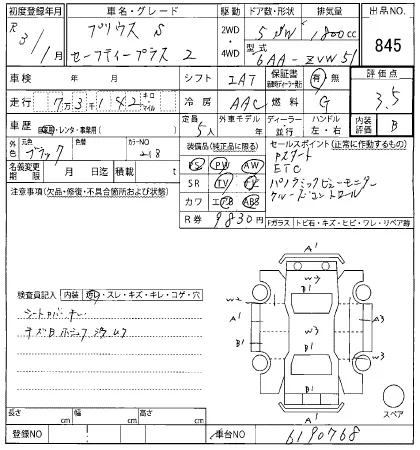 初度登録年月 車名・グレード 駆動 ドア数・形状 排気量 出品NO.
R3/1月 プリウス S 2WD・4WD 5 DW 1800cc 845
セーフティープラス 2 型式 6AA-ZVW51
車検 年 月 シフト IAT 保証書 有・無 評価点
走行 7万3千142 キロ マイル 冷房 AAC 燃料 G 3.5
車歴 自家用・レンタ・事業用( ) 定員 5人 外車モデル 年 ディーラー・並行 ハンドル 左・右 内装評価 B
外色 元色 ブラック 色替 カラーNO 218
装備品(純正品に限る) セールスポイント(正常に作動するもの)
名義変更期限 月 日迄 積載 t
PS PW AW
SR TV
カワ エアB ABS
R券 9830円
Pスタート
ETC
パノラミックビューモニター
クルーズコントロール
注意事項(欠品・修復・不具合箇所および状態)
Fガラス トビ石・キズ・ヒビ・ワレ・リペア跡
検査員記入 内装 汚れ・スレ・キズ・キレ・コゲ・穴
A1
W3
B1
W2
A1
B1
W3
A3
W3
B1
A1
スペア
長さ cm 幅 cm 高さ cm
登録NO 車台NO 6190768